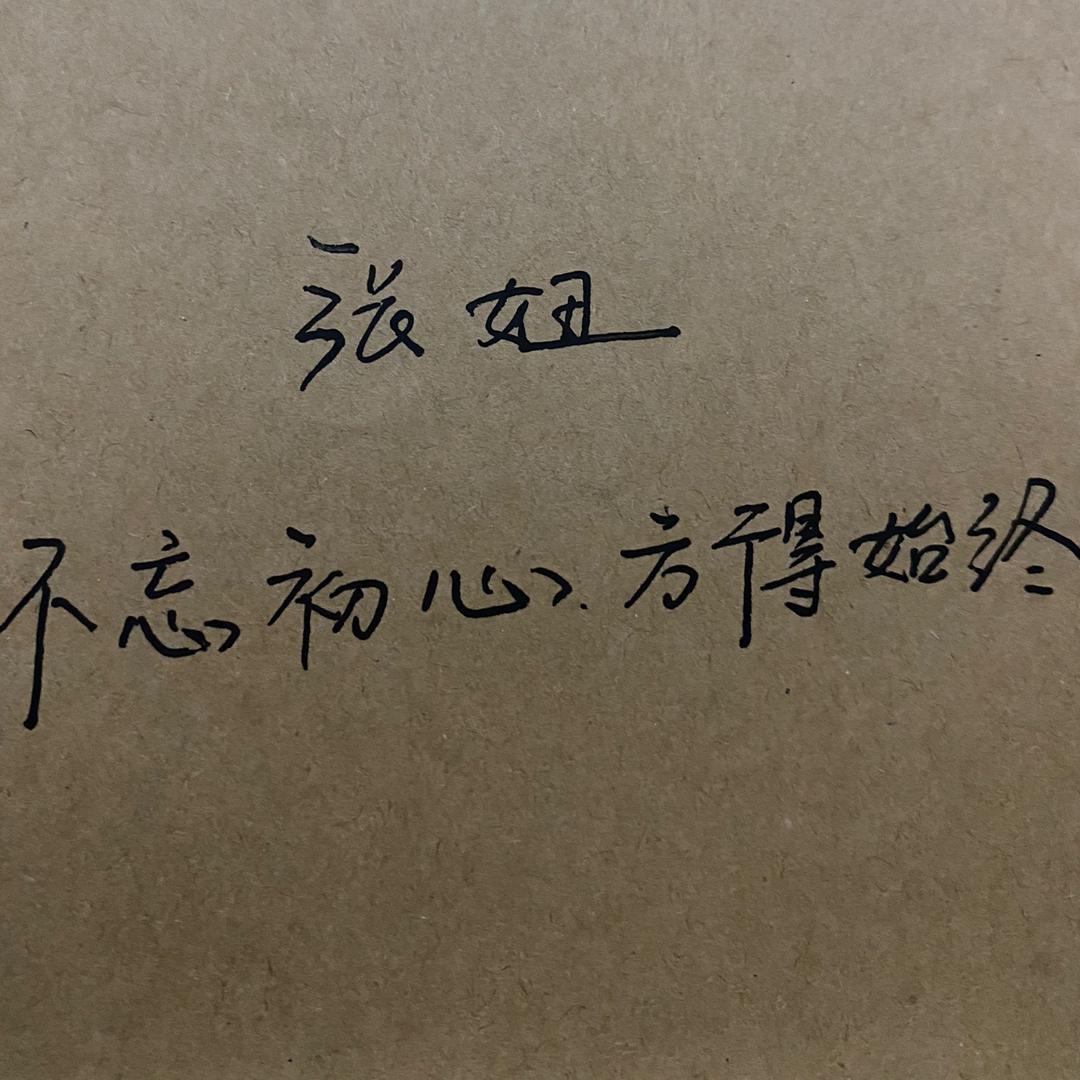 张妞
不忘初心、方得始终